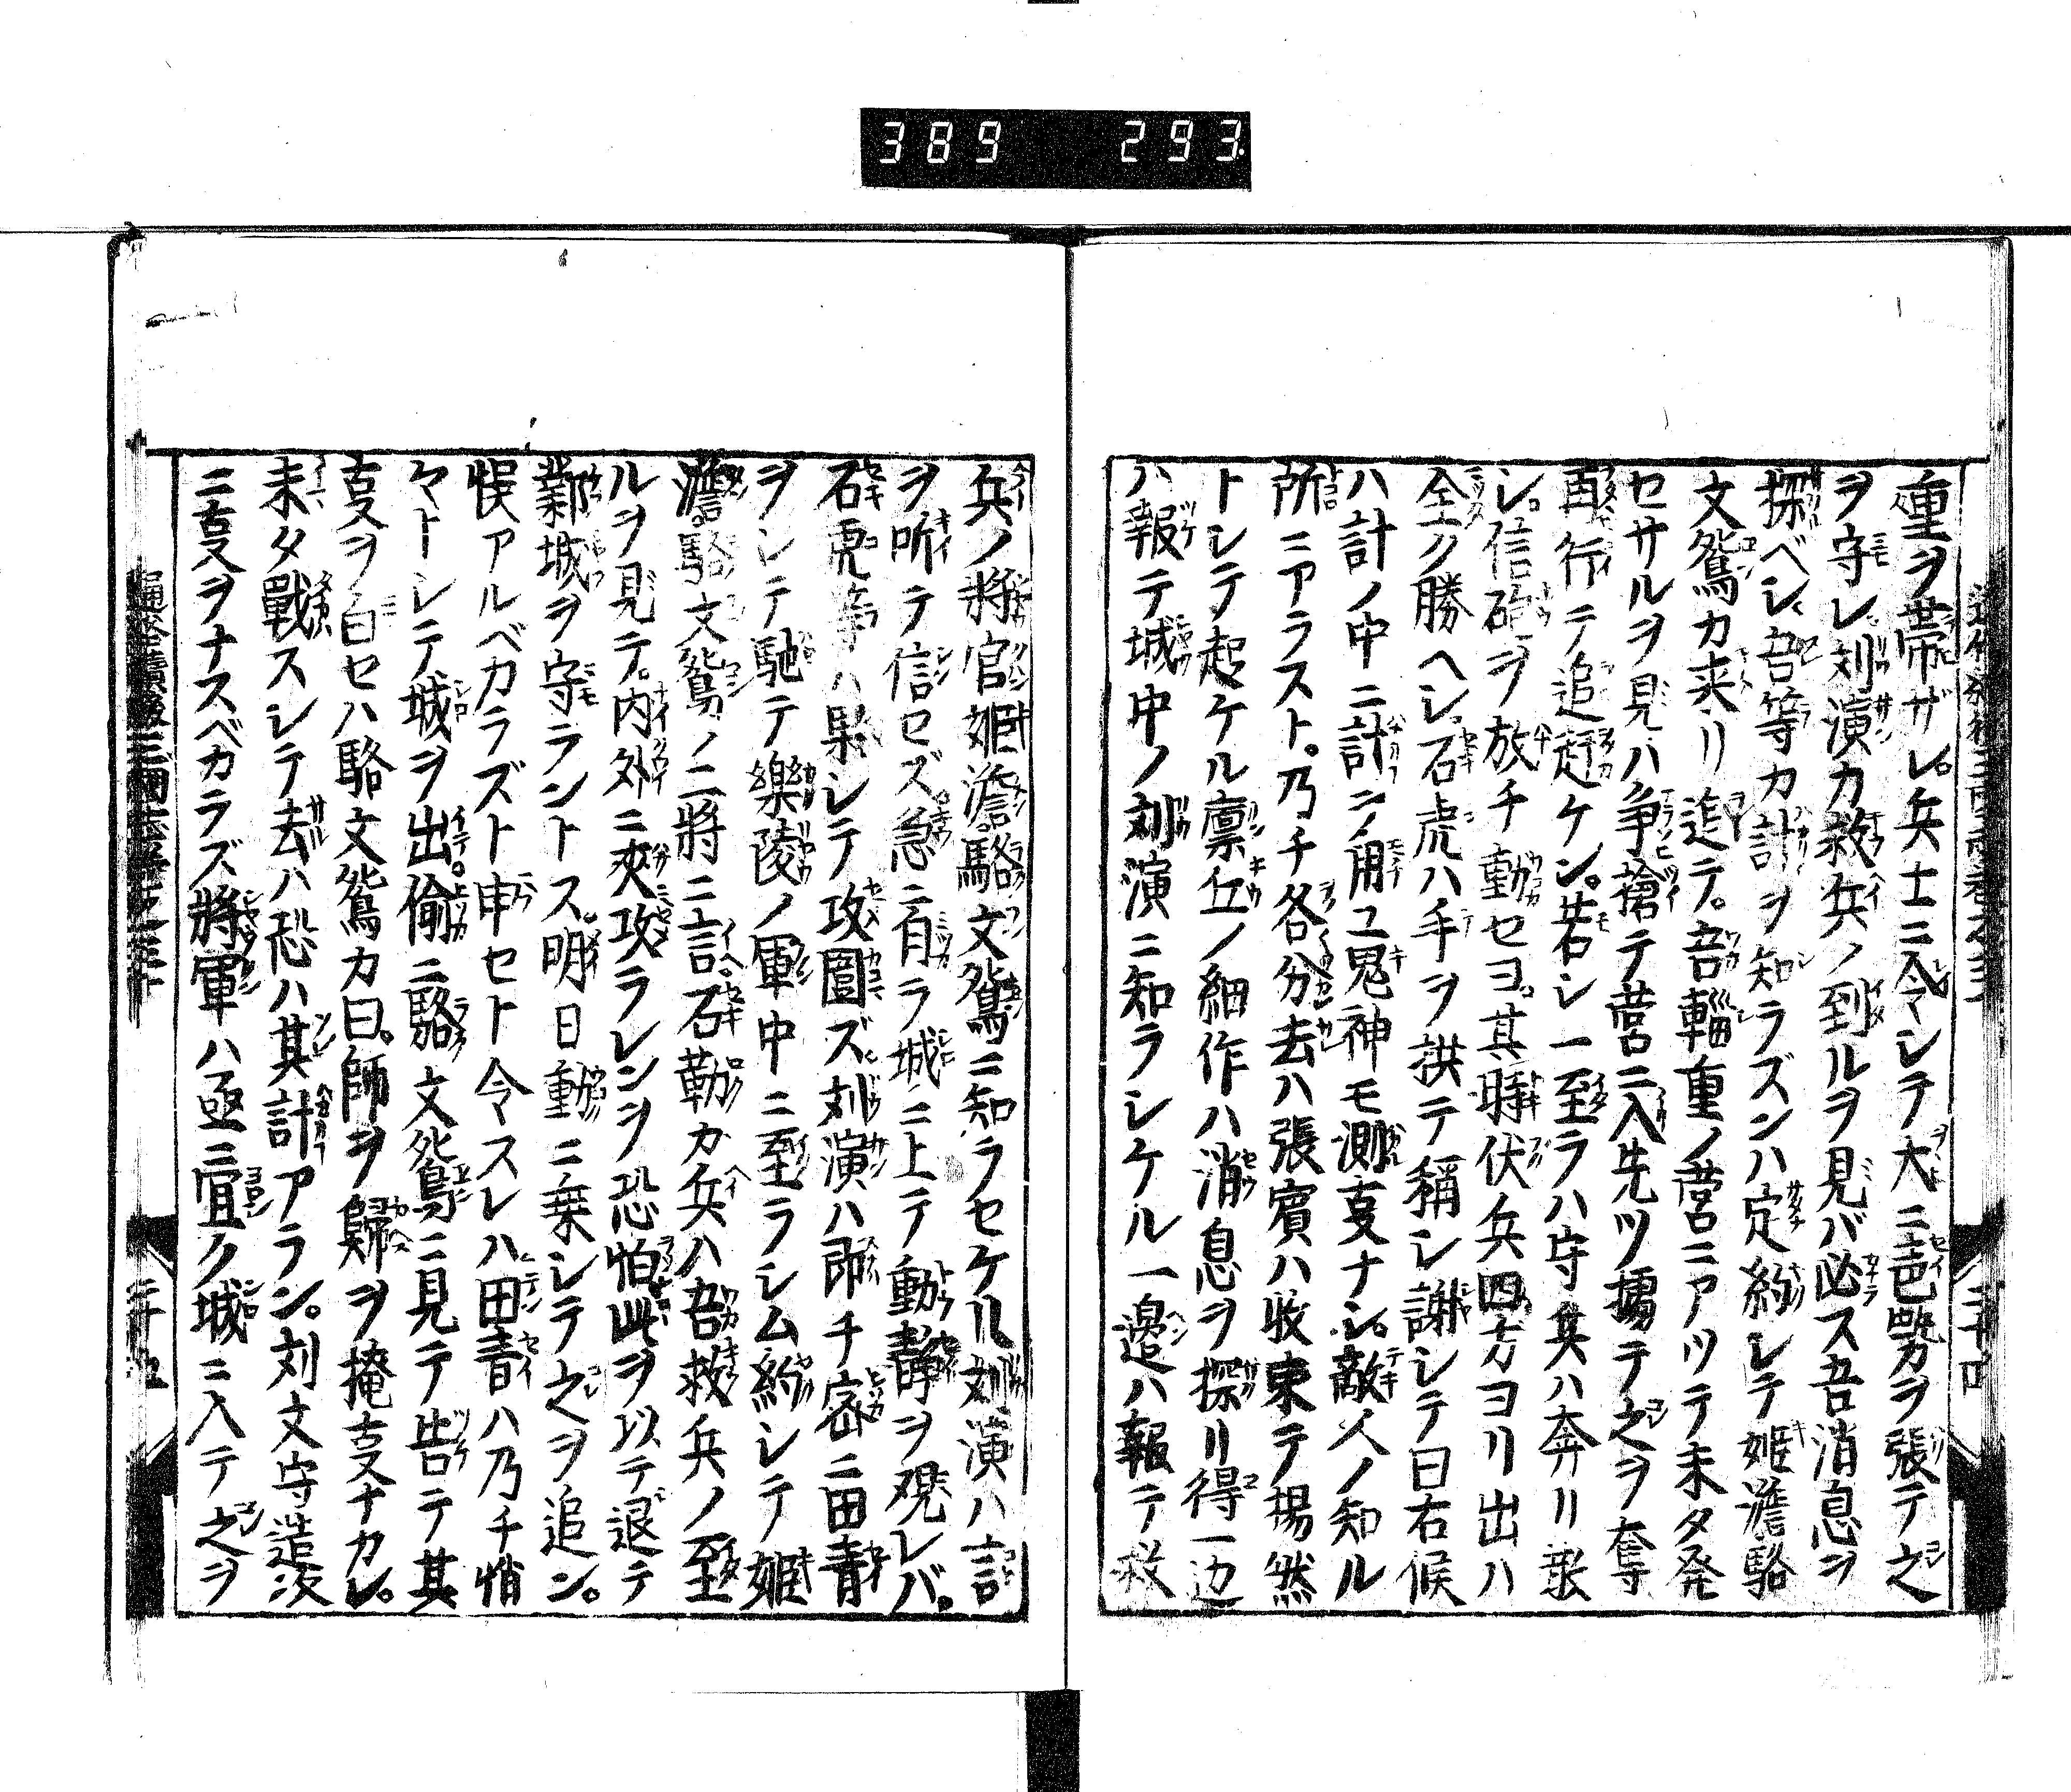 389 293
重ヲ帯ザレ。兵士ニ令シテ大ニ声勢ヲ張テ之
ヲ守レ刘演カ救兵ノ到ルヲ見バ必ス吾消息ヲ
探ベシ、吾等カ計ヲ知ラズンハ定約レテ姫澹駱
文鴦カ来リ追テ。吾輜重ノ営ニアツテ未タ発
セサルヲ見ハ争搶テ営ニ入先ツ擄テ之ヲ奪
再行テ追趕ケン。若シ一至ラハ守兵ハ奔リ散
シ。信砲ヲ放チ動セヨ。其時伏兵四方ヨリ出ハ
全ク勝ヘシ石虎ハ手ヲ拱テ稱シ謝シテ曰右候
ハ計ノ中ニ計ヲ用ユ鬼神モ測㕝ナシ。敵人ノ知ル
所ニアラスト。乃チ各分去ハ張賓ハ收束テ揚然
トシテ起ケル凛丘ノ細作ハ消息ヲ探リ得一边
ハ報テ城中ノ刘演ニ知ラシケル一邉ハ報テ救
兵ノ將官姫澹駱文鴦ニ知ラセケル刘演ハ言
ヲ听テ信セズ急ニ有ラ城ニ上テ動静ヲ覌レバ。
石虎等ハ果シテ攻圍ズ刘演ハ即チ密ニ田青
ヲシテ馳テ樂陵ノ軍中ニ至ラシム約シテ姫
澹。駱文鴦ノ二将ニ言。石勒カ兵ハ吾救兵ノ至
ルヲ見テ。内外ニ夾攻ラレンヲ恐怕此ヲ以テ退テ
業城ヲ守ラントス。明日動ニ乗シテ之ヲ追ン。
悞アルベカラズト申セト令スレハ田青ハ乃チ悄
々トシテ城ヲ出。偷ニ駱文鴦ニ見テ告テ其
㕝ヲ白セハ駱文鴦カ曰。師ヲ歸ヲ掩㕝ナカレ。
未タ戰スレテ去ハ恐ハ其計アラン。刘文守造次
ニ㕝ヲナスベカラズ將軍ハ亟ニ宜ク城ニ入テ之ヲ